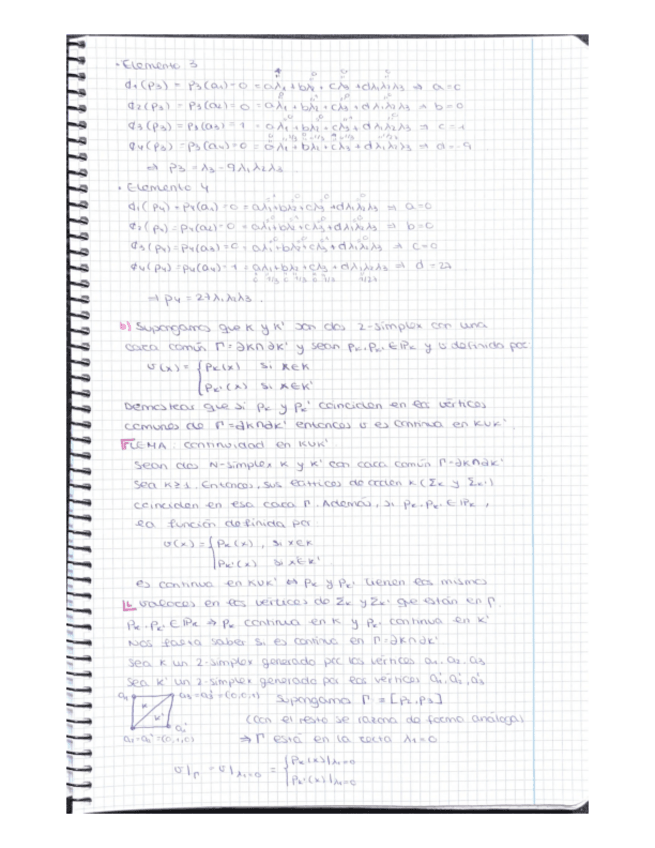 · Elemento 3
φ₁(p₃) = p₃(a₁) = 0 = aλ₁ + bλ₂ + cλ₃ + dλ₁λ₂λ₃ ⇒ a = 0
φ₂(p₃) = p₃(a₂) = 0 = aλ₁ + bλ₂ + cλ₃ + dλ₁λ₂λ₃ ⇒ b = 0
φ₃(p₃) = p₃(a₃) = 1 = aλ₁ + bλ₂ + cλ₃ + dλ₁λ₂λ₃ ⇒ c = 1
φ₄(p₃) = p₃(a₄) = 0 = aλ₁ + bλ₂ + cλ₃ + dλ₁λ₂λ₃ ⇒ d = -9
⇒ p₃ = λ₃ - 9λ₁λ₂λ₃.
· Elemento 4
φ₁(p₄) = p₄(a₁) = 0 = aλ₁ + bλ₂ + cλ₃ + dλ₁λ₂λ₃ ⇒ a = 0
φ₂(p₄) = p₄(a₂) = 0 = aλ₁ + bλ₂ + cλ₃ + dλ₁λ₂λ₃ ⇒ b = 0
φ₃(p₄) = p₄(a₃) = 0 = aλ₁ + bλ₂ + cλ₃ + dλ₁λ₂λ₃ ⇒ c = 0
φ₄(p₄) = p₄(a₄) = 1 = aλ₁ + bλ₂ + cλ₃ + dλ₁λ₂λ₃ ⇒ d = 27
⇒ p₄ = 27λ₁λ₂λ₃.
b) Supongamos que K y K' son dos 2-simplex con una
cara común Γ = ∂K∩∂K' y sean pₖ, pₖ' ∈ ℙₖ y v definida por
v(x) = { pₖ(x) si x∈K
pₖ'(x) si x∈K'
Demostrar que si pₖ y pₖ' coinciden en los vértices
comunes de Γ = ∂K∩∂K' entonces v es continua en K∪K'.
LEMA: continuidad en K∪K'
Sean dos N-simplex K y K' con cara común Γ = ∂K∩∂K'
Sea k≥1. Entonces, sus látices de orden k (Σₖ y Σₖ')
coinciden en esa cara Γ. Además, si pₖ, pₖ' ∈ ℙₖ,
la función definida por
v(x) = { pₖ(x), si x∈K
pₖ'(x) si x∈K'
es continua en K∪K' ⇔ pₖ y pₖ' tienen los mismos
valores en los vértices de Σₖ y Σₖ' que están en Γ.
pₖ, pₖ' ∈ ℙₖ ⇒ pₖ continua en K y pₖ' continua en K'
Nos falta saber si es continua en Γ = ∂K∩∂K'
Sea K un 2-simplex generado por los vértices a₁, a₂, a₃
Sea K' un 2-simplex generado por los vértices a₁', a₂', a₃'
a₁ a₃ = a₃' = (0,0,1) Supongamos Γ = [p₂, p₃]
K K' a₁' (con el resto se razona de forma análoga)
a₂ = a₂' = (0,1,0) ⇒ Γ está en la recta λ₁ = 0
v|_Γ = v|_λ₁=0 = { pₖ(x)|λ₁=0
pₖ'(x)|λ₁=0